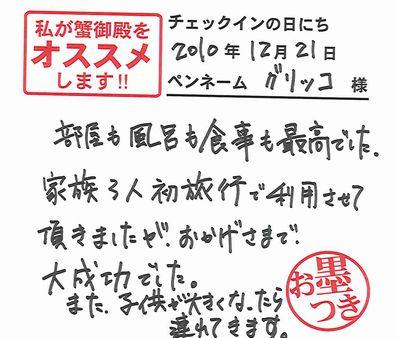 私が蟹御殿を
オススメ
します!!
チェックインの日にち
2010年12月21日
ペンネーム グリッコ 様
部屋も風呂も食事も最高でした。
家族3人初旅行で利用させて
頂きましたが、おかげさまで
大成功でした。
また、子供が大きくなったら
連れてきます。
お墨つき